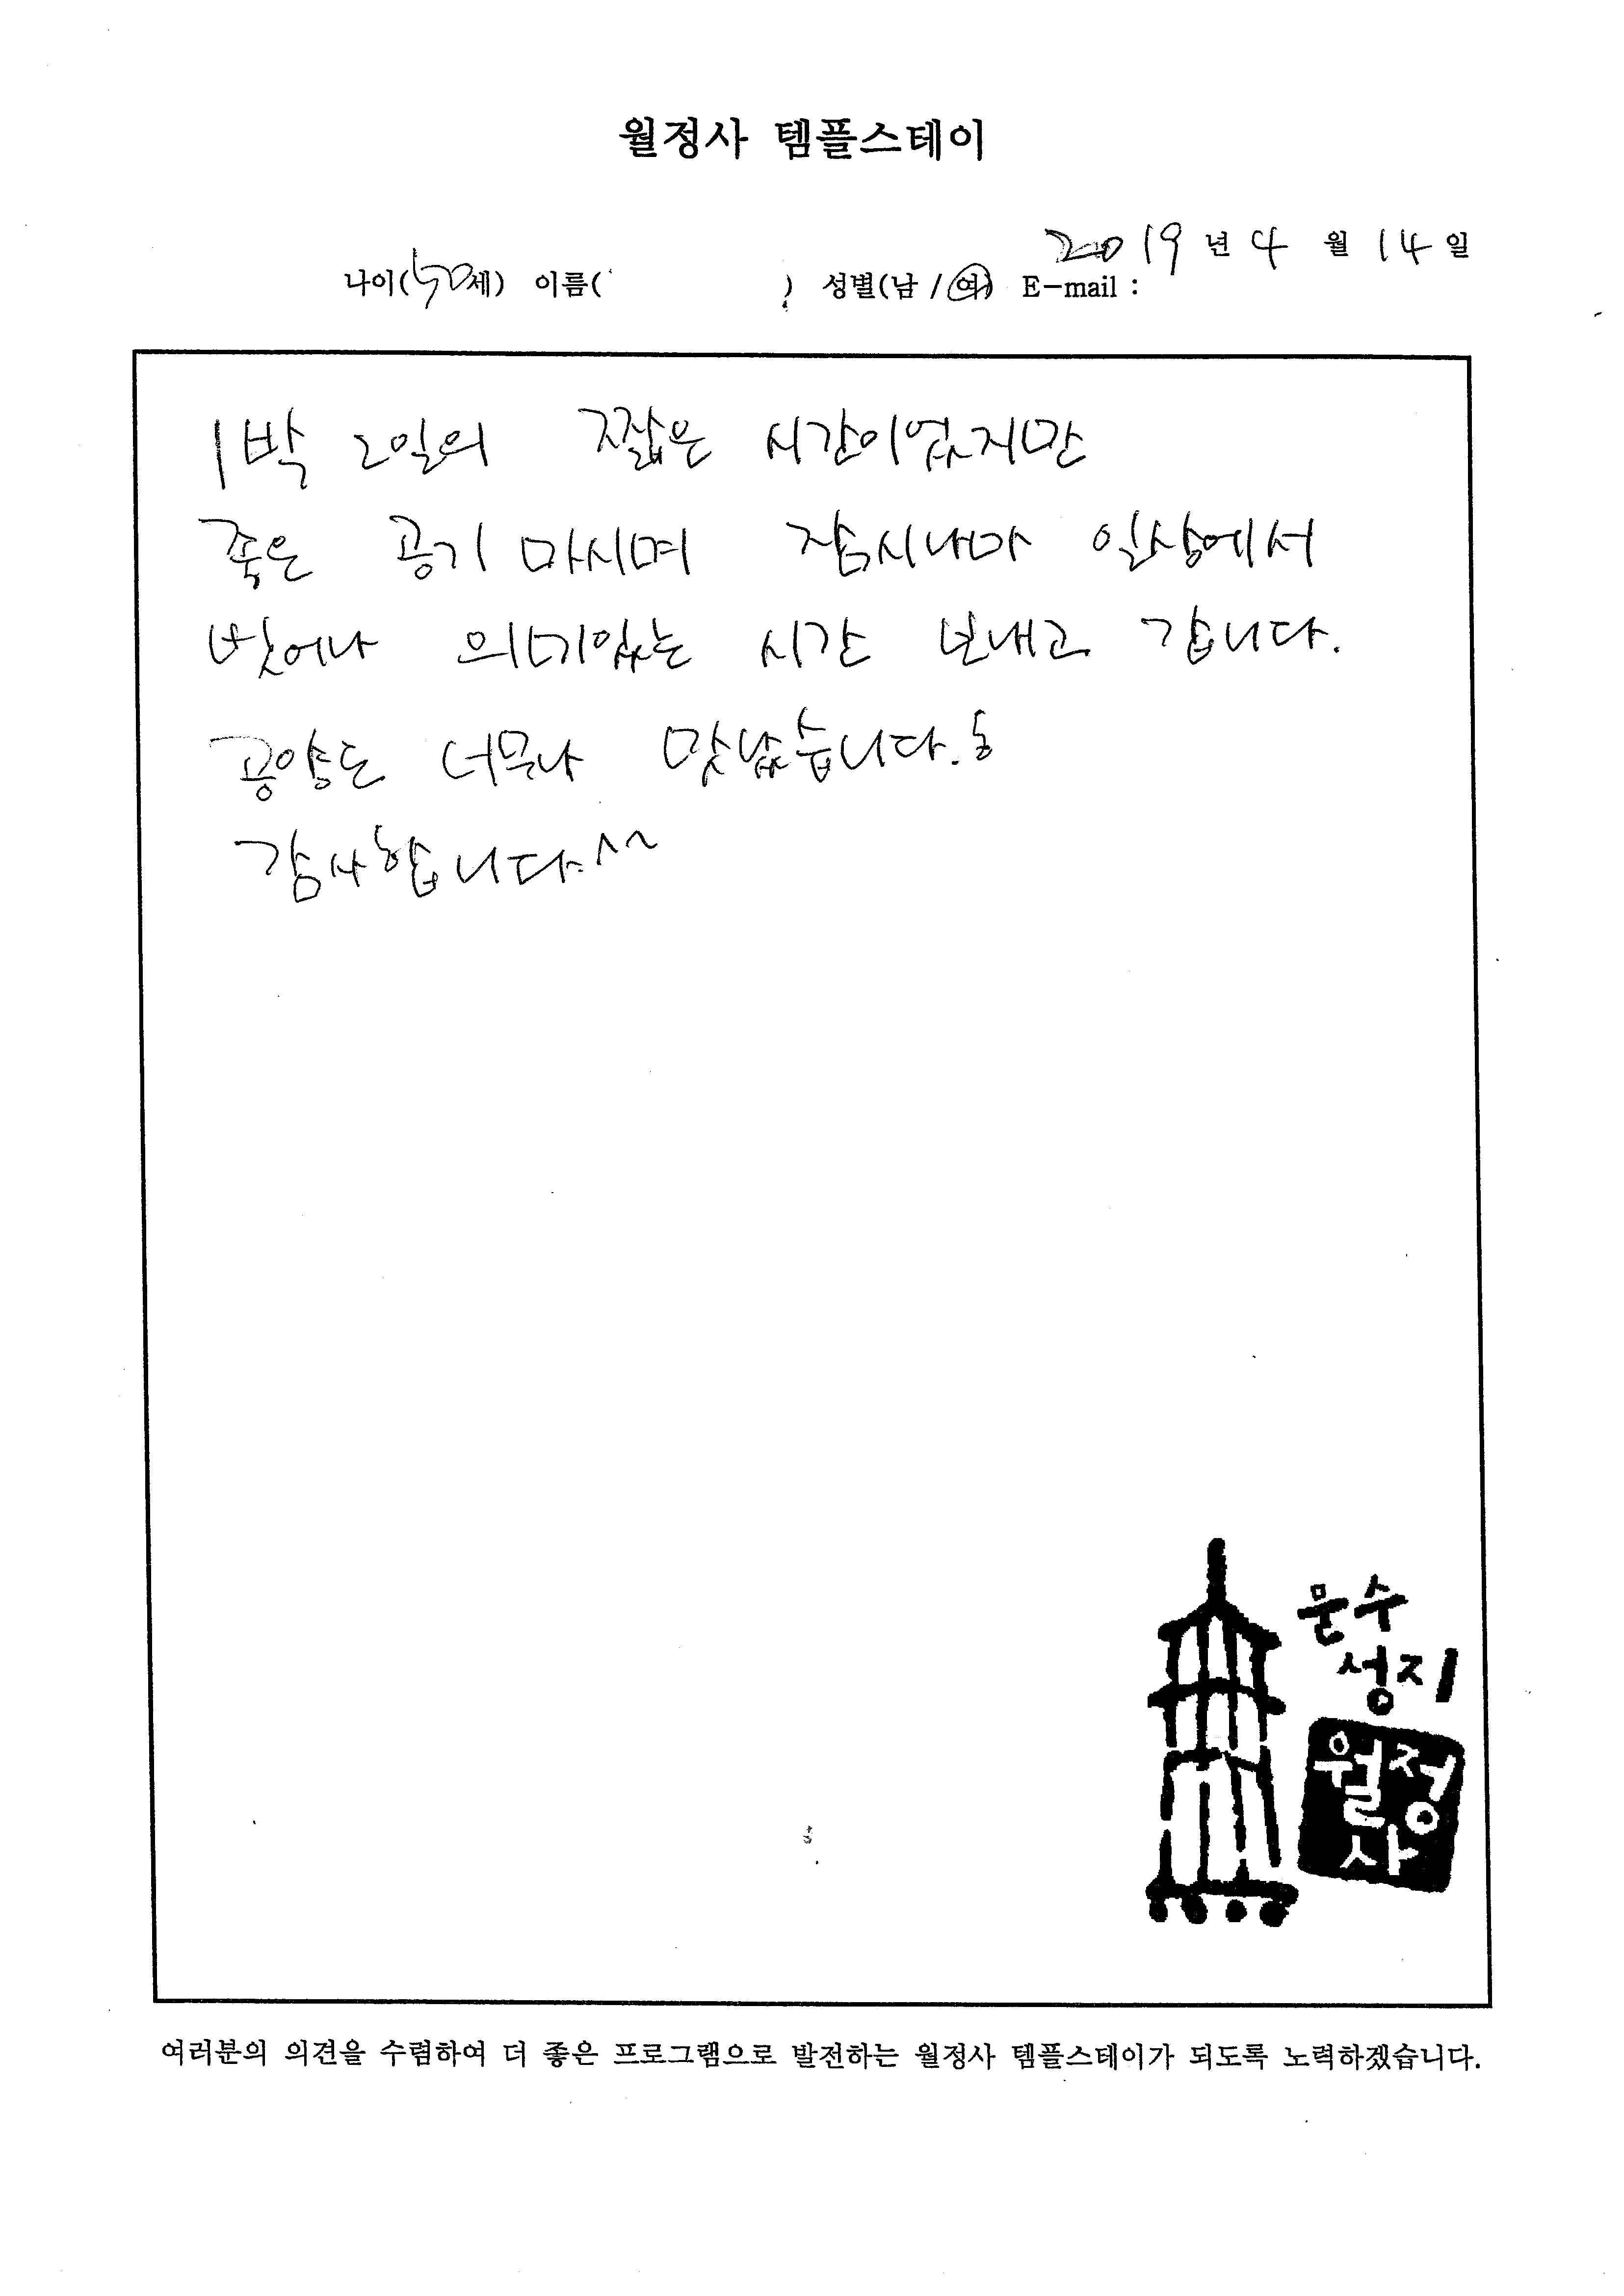 월정사 템플스테이
2019년 4월 14일
나이(50세) 이름( ) 성별(남/여) E-mail :
1박 2일의 짧은 시간이었지만
좋은 공기 마시며 잠시나마 일상에서
벗어나 의미있는 시간 보내고 갑니다.
공양도 너무나 맛났습니다.
감사합니다.^^
문수
성지
월정
사
여러분의 의견을 수렴하여 더 좋은 프로그램으로 발전하는 월정사 템플스테이가 되도록 노력하겠습니다.